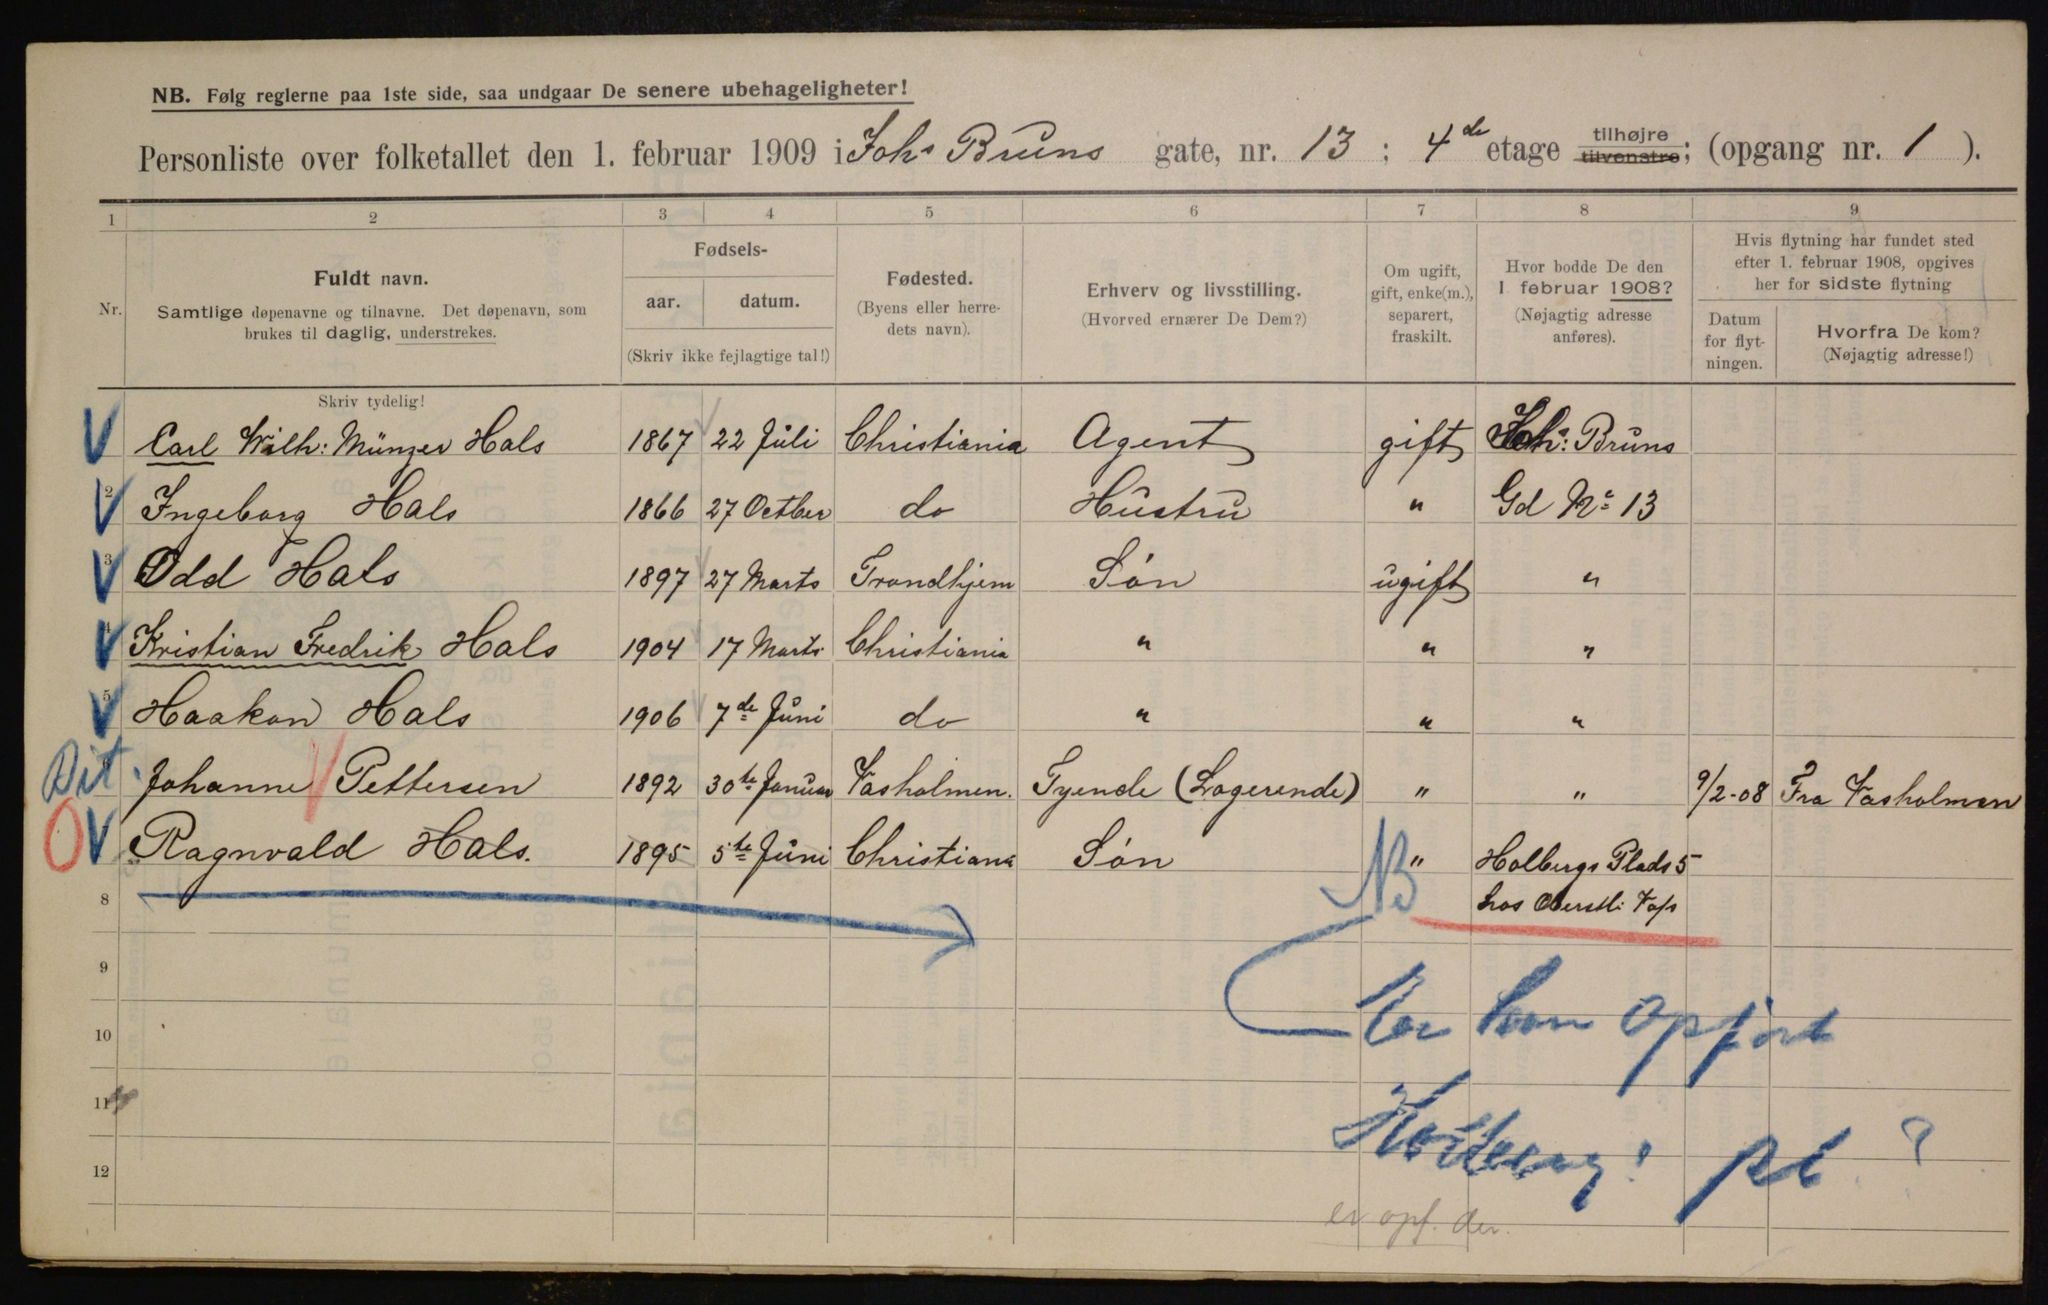 NB. Følg reglerne paa 1ste side, saa undgaar De senere ubehageligheter!
Personliste over folketallet den 1. februar 1909 i Johs Bruns gate, nr. 13 ; 4de etage tilhøjre tilvenstre; (opgang nr. 1 ).
1 2 3 4 5 6 7 8 9
Nr.
Fuldt navn.
Samtlige døpenavne og tilnavne. Det døpenavn, som
brukes til daglig, understrekes.
Fødsels-
aar. datum.
(Skriv ikke fejlagtige tal!)
Fødested.
(Byens eller herre-
dets navn).
Erhverv og livsstilling.
(Hvorved ernærer De Dem?)
Om ugift,
gift, enke(m.),
separert,
fraskilt.
Hvor bodde De den
1 februar 1908?
(Nøjagtig adresse
anføres).
Hvis flytning har fundet sted
efter 1. februar 1908, opgives
her for sidste flytning
Datum
for flyt-
ningen.
Hvorfra De kom?
(Nøjagtig adresse!)
Skriv tydelig!
Carl Wilh: Münzer Hals 1867 22 Juli Christiania Agent gift Joh's: Bruns
2 Ingeborg Hals 1866 27 Octber do Hustru " Gd No 13
3 Odd Hals 1897 27 Marts Trondhjem Søn ugift "
4 Kristian Fredrik Hals 1904 17 Marts Christiania " " "
5 Haakon Hals 1906 7de Juni do " " "
Dit. Johanne Pettersen 1892 30te Januar Vasholmen. Tyende (Logerende) " " 9/2-08 Fra Vasholmen
Ragnvald Hals. 1895 5te Juni Christiania Søn " Holbergs Plads 5
8 hos Oberstl: Vofs
NB
9
Er han opført
10
11
Holberg's pl. ?
12
er opf. der.